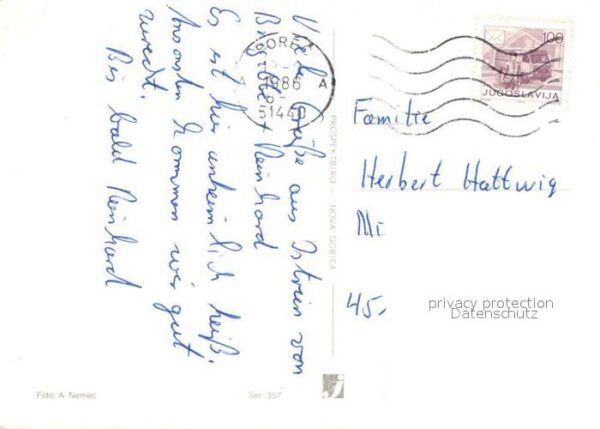 Viele Grüße aus Istrien von
Brigitte + Reinhard
Es ist hier unheimlich heiß.
Ansonsten kommen wir gut
zurecht.
Bis bald Reinhard
POREČ
1986
A
51440
100
JUGOSLAVIJA
PROSPEKTBIRO — NOVA GORICA
Familie
Herbert Hattwig
Mi
45.
privacy protection
Datenschutz
Foto: A. Nemec
Ser. 357